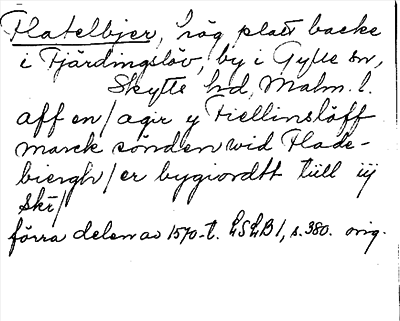 Flatelbjer, hög platt backe
i Fjärdingslöv, by i Gylle sn,
Skytts hd, Malm. l.
aff en / agir y Fiellinslöff
marck sönden wid Flade-
biergh / er bygiordtt tiill iij
Skr /
förra delen av 1570-t. LSLB 1, s. 380. orig.